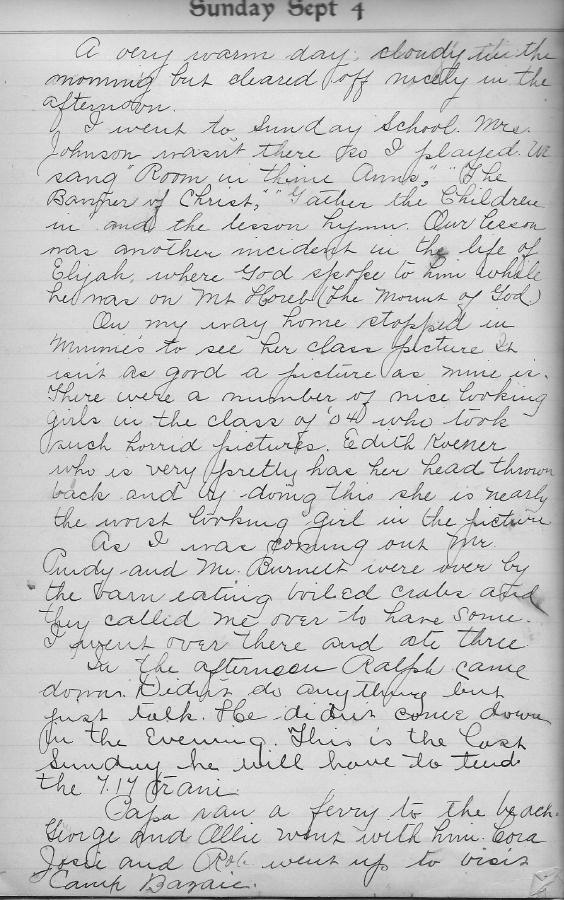 Sunday Sept 4
A very warm day, cloudy in the
morning but cleared off nicely in the
afternoon.
I went to Sunday School. Mrs.
Johnson wasn't there so I played. We
sang "Room in thine Arms," "The
Banner of Christ," "Gather the Children
in" and the lesson hymn. Our lesson
was another incident in the life of
Elijah, where God spoke to him while
he was on Mt Horeb (The Mount of God)
On my way home stopped in
Minnie's to see her class picture It
isn't as good a picture as mine is.
There were a number of nice looking
girls in the class of '04 who took
such horrid pictures. Edith Koener
who is very pretty has her head thrown
back and by doing this she is nearly
the worst looking girl in the picture
As I was coming out Mr.
Purdy and Mr. Burnett were over by
the barn eating boiled crabs and
they called me over to have some.
I went over there and ate three
In the afternoon Ralph came
down. Didn't do anything but
just talk. He didn't come down
in the Evening. This is the last
Sunday he will have to tend
the 7.17 train.
Papa ran a ferry to the beach.
George and Allie went with him. Cora
Josie and Rob. went up to visit
Camp